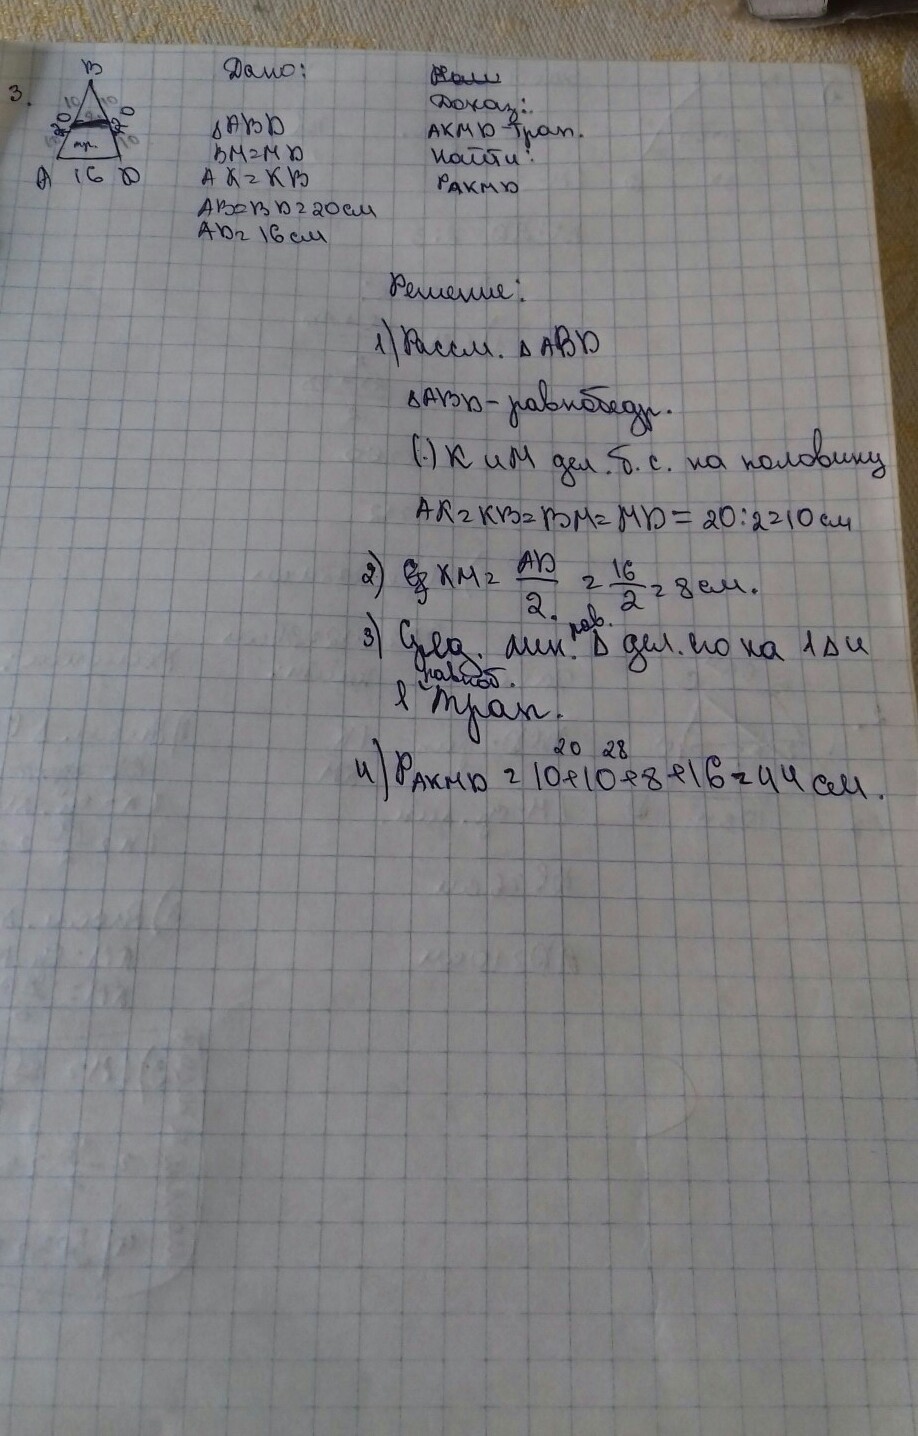 3.
B
10 10
20 20
тр.
10
A 16 D
Дано:
△ABD
BM=MD
AK=KB
AB=BD=20см
AD=16см
Доказ:
AKMD-трап.
Найти:
PAKMD
Решение:
1) Рассм. △ABD
△ABD-равнобедр.
(·) K и M дел. б. с. на половину
AK=KB=BM=MD=20:2=10см
2) KM= AD/2 = 16/2 = 8см.
3) Сред. лин. рав. △ дел. его на 1△ и
1 равноб. трап.
20 28
4) PAKMD =10+10+8+16=44см.